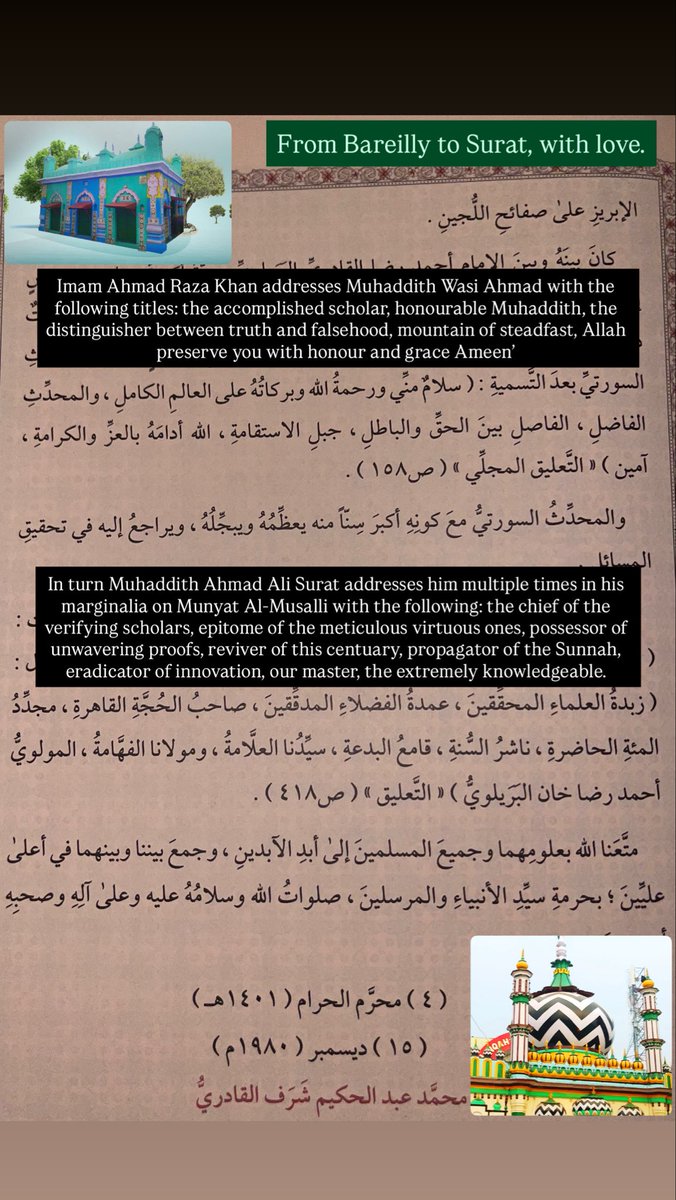 From Bareilly to Surat, with love.
الإبريزِ علىٰ صفائحِ اللُّجينِ .
كانَ بينَهُ وبينَ الإمامِ أحمد رضا القادريِّ
Imam Ahmad Raza Khan addresses Muhaddith Wasi Ahmad with the
following titles: the accomplished scholar, honourable Muhaddith, the
distinguisher between truth and falsehood, mountain of steadfast, Allah
preserve you with honour and grace Ameen’
السورتيِّ بعدَ التَّسميةِ : ( سلامٌ منِّي ورحمةُ الله وبركاتُهُ على العالمِ الكاملِ ، والمحدِّثِ
الفاضلِ ، الفاصلِ بينَ الحقِّ والباطلِ ، جبلِ الاستقامةِ ، الله أدامَهُ بالعزِّ والكرامةِ ،
آمين ) « التَّعليق المجلِّي » ( ص١٥٨ ) .
والمحدِّثُ السورتيُّ معَ كونِهِ أكبرَ سِنّاً منه يعظِّمُهُ ويبجِّلُهُ ، ويراجعُ إليه في تحقيقِ
المسائلِ
In turn Muhaddith Ahmad Ali Surat addresses him multiple times in his
marginalia on Munyat Al-Musalli with the following: the chief of the
verifying scholars, epitome of the meticulous virtuous ones, possessor of
unwavering proofs, reviver of this centuary, propagator of the Sunnah,
eradicator of innovation, our master, the extremely knowledgeable.
( زبدةُ العلماءِ المحقِّقينَ ، عمدةُ الفضلاءِ المدقِّقينَ ، صاحبُ الحُجَّةِ القاهرةِ ، مجدِّدُ
المئةِ الحاضرةِ ، ناشرُ السُّنةِ ، قامعُ البدعةِ ، سيِّدُنا العلَّامةُ ، ومولانا الفهَّامةُ ، المولويُّ
أحمد رضا خان البَرَيلويُّ ) « التَّعليق » ( ص٤١٨ ) .
متَّعَنا الله بعلومِهما وجميعَ المسلمينَ إلىٰ أبدِ الآبدينِ ، وجمعَ بيننا وبينهما في أعلىٰ
علِّيِّينَ ؛ بحرمةِ سيِّدِ الأنبياءِ والمرسلينَ ، صلواتُ الله وسلامُهُ عليه وعلىٰ آلِهِ وصحبِهِ
( ٤ ) محرَّم الحرام ( ١٤٠١هـ )
( ١٥ ) ديسمبر ( ١٩٨٠م )
محمَّد عبد الحكيم شَرَف القادريُّ